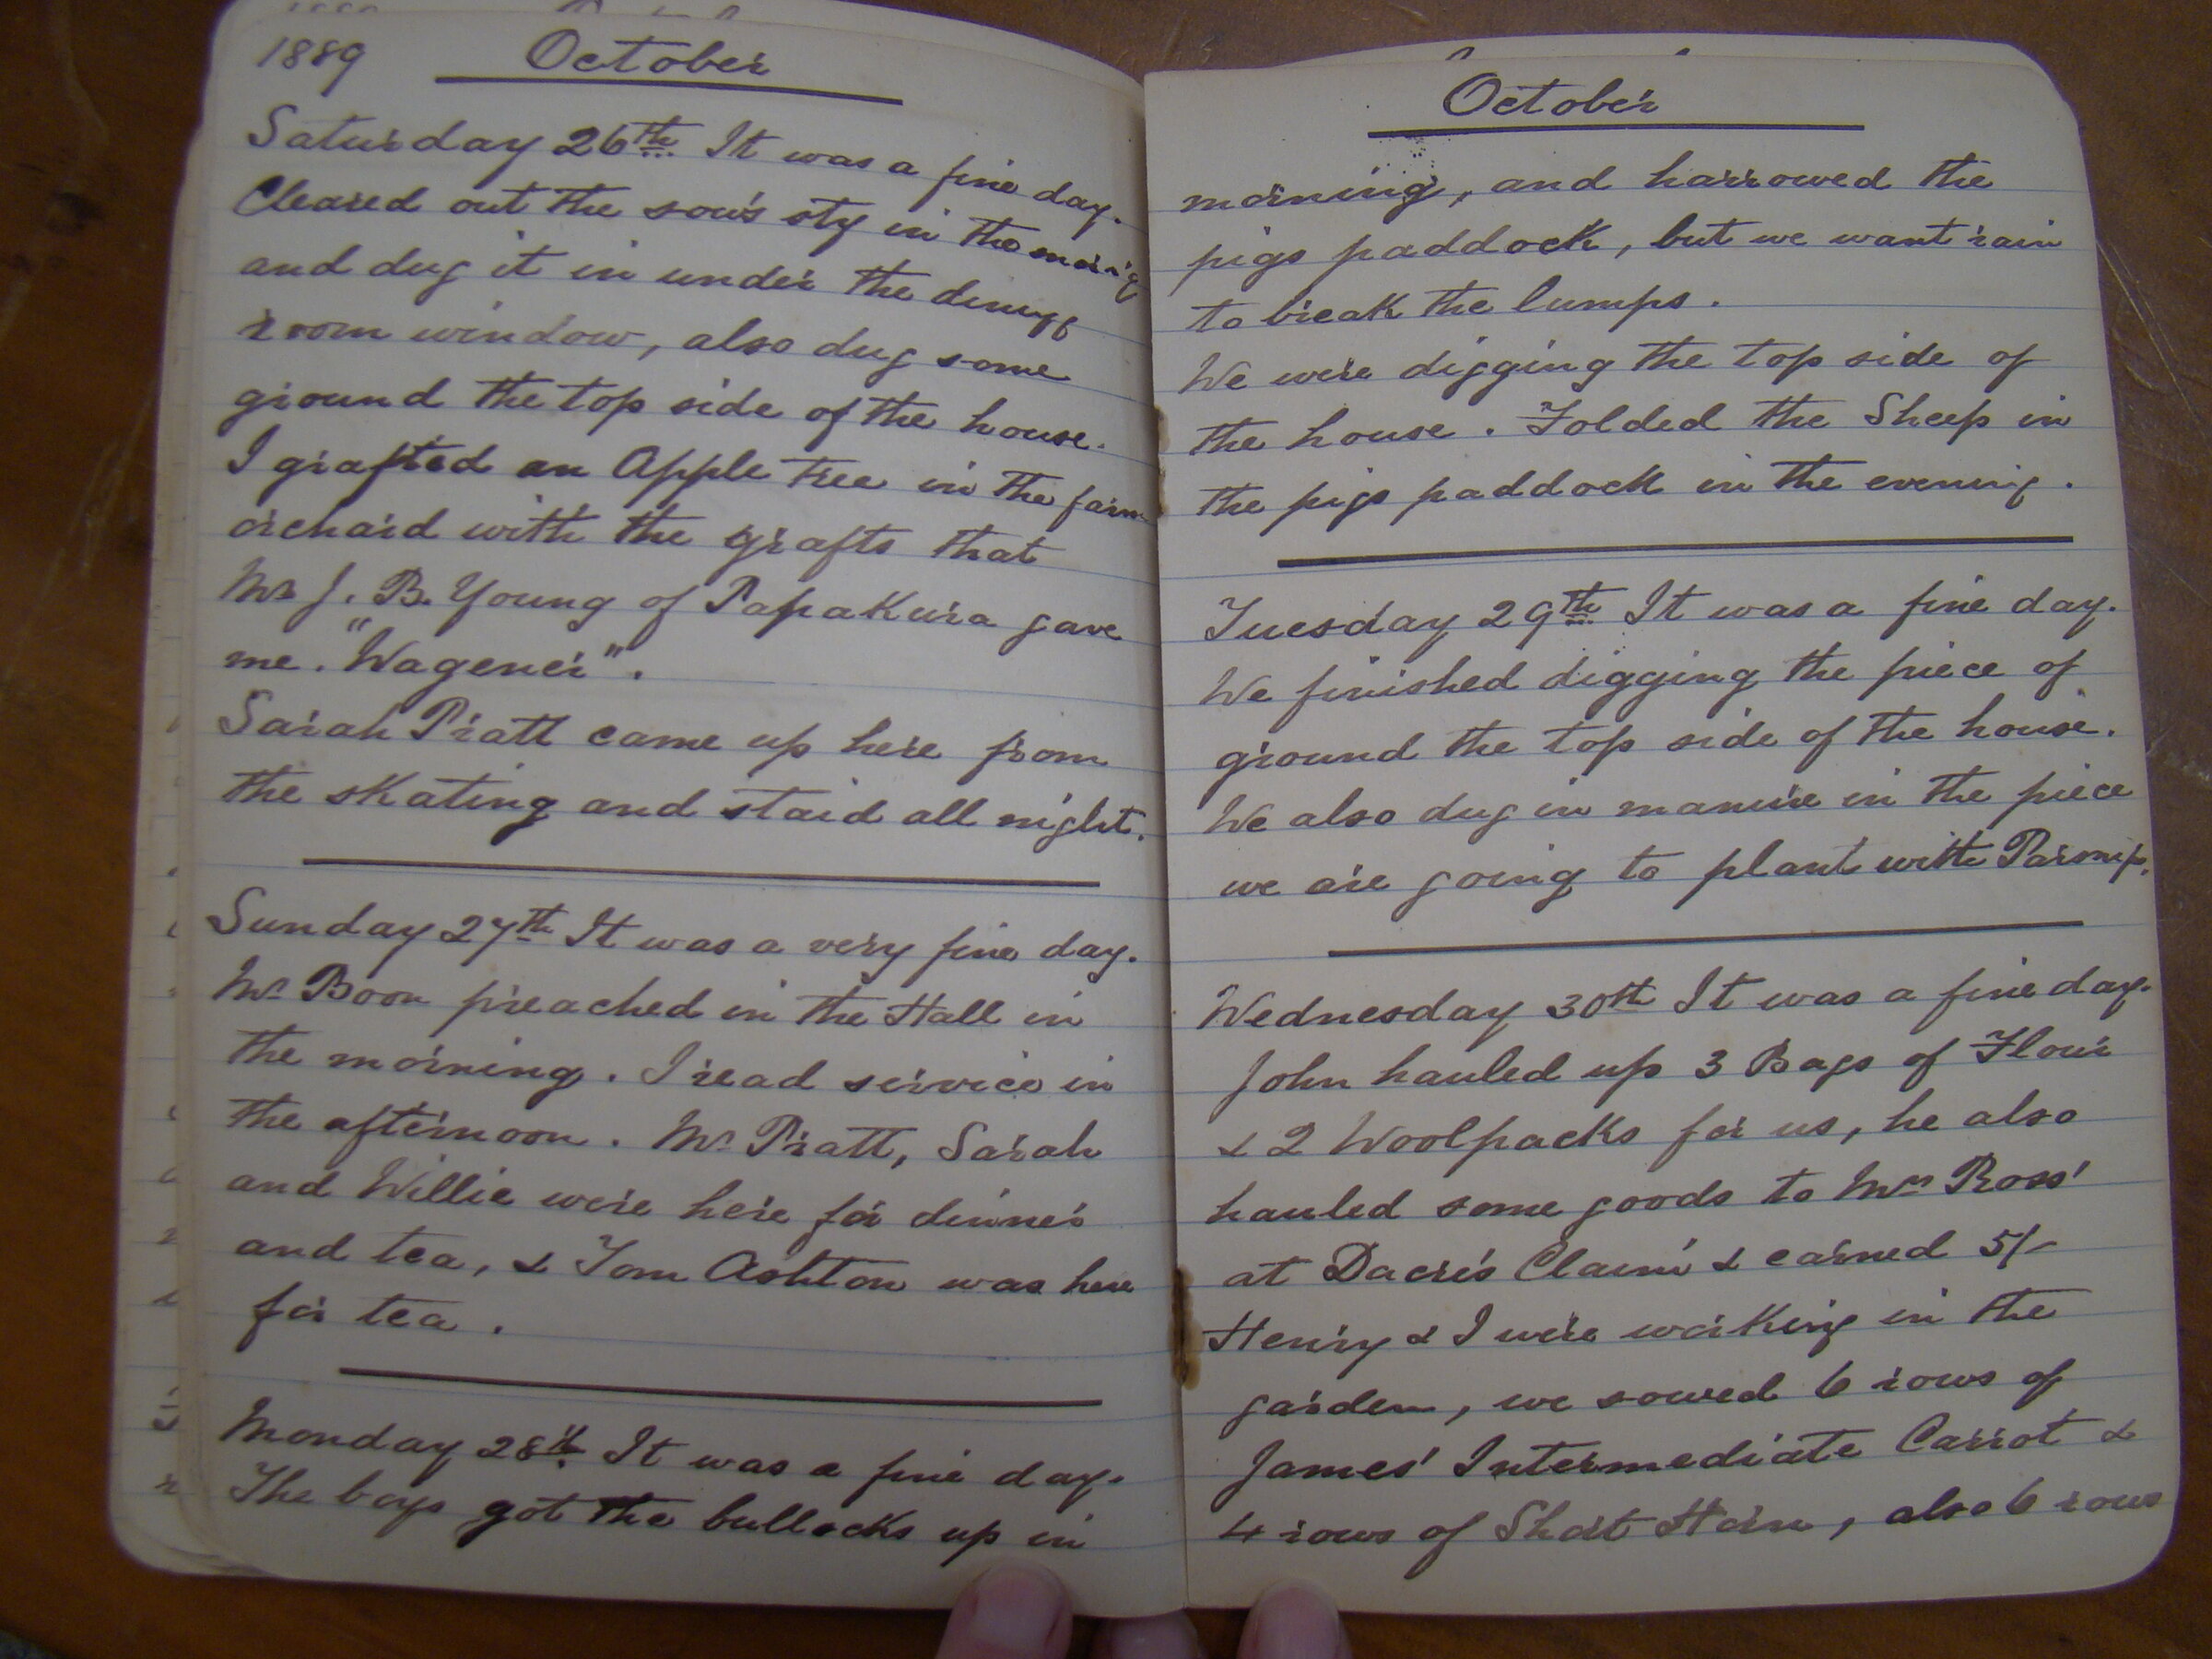 1889 October
Saturday 26th It was a fine day.
Cleared out the sow's sty in the mornig
and dug it in under the dining
room window, also dug some
ground the top side of the house.
I grafted an Apple tree in the farm
orchard with the grafts that
Mr J. B. Young of Papakura gave
me. "Wagener".
Sarah Pratt came up here from
the skating and staid all night.
Sunday 27th It was a very fine day.
Mr Boon preached in the Hall in
the morning. I read service in
the afternoon. Mr Pratt, Sarah
and Willie were here for dinner
and tea, & Tom Ashton was here
for tea.
Monday 28th It was a fine day.
The boys got the bullocks up in
October
morning, and harrowed the
pigs paddock, but we want rain
to break the lumps.
We were digging the top side of
the house. Folded the Sheep in
the pigs paddock in the evening.
Tuesday 29th It was a fine day.
We finished digging the piece of
ground the top side of the house.
We also dug in manure in the piece
we are going to plant with Parsnip.
Wednesday 30th It was a fine day.
John hauled up 3 Bags of Flour
& 2 Woolpacks for us, he also
hauled some goods to Mrs Ross'
at Dacre's Claim & earned 5/-
Henry & I were working in the
garden, we sowed 6 rows of
James' Intermediate Carrot &
4 rows of Short Horn, also 6 rows